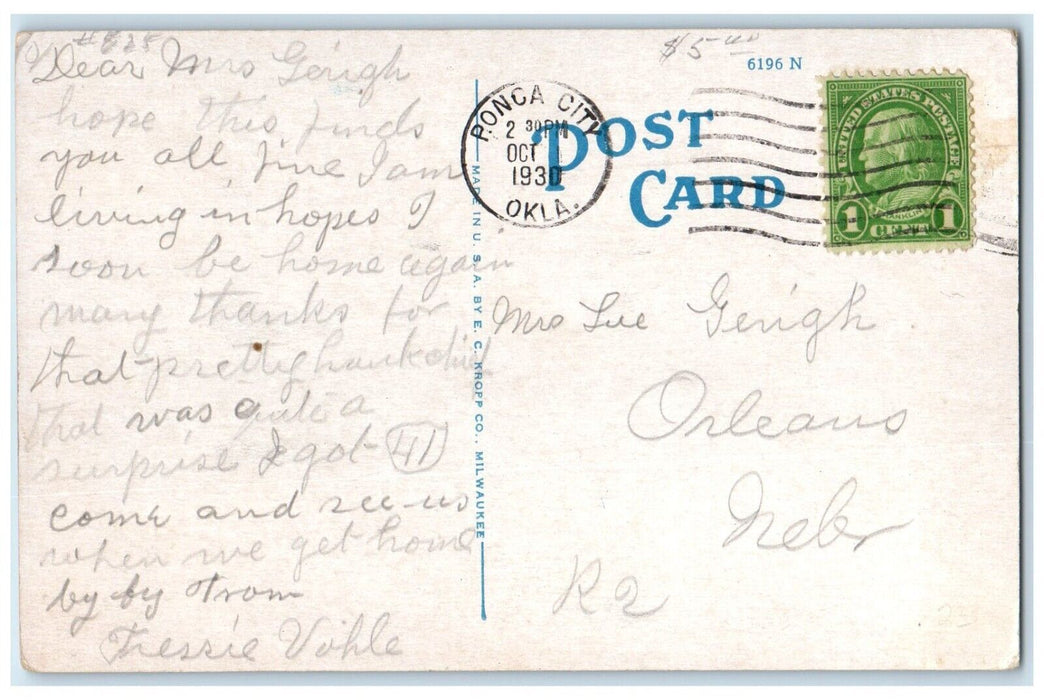 #825
Dear Mrs Gerigh
hope this finds
you all fine I am
living in hopes I
soon be home again
many thanks for
that pretty hankchief
that was quite a
surprise I got 41
come and see us
when we get home
by by From
Tressie Vohle
MADE IN U. S. A. BY E. C. KROPP CO., MILWAUKEE
$5.00
6196 N
PONCA CITY
2 30PM
OCT
1930
OKLA.
POST
CARD
UNITED STATES POSTAGE
FRANKLIN
1 CENT 1
Mrs Sue Gerigh
Orleans
Nebr
R2